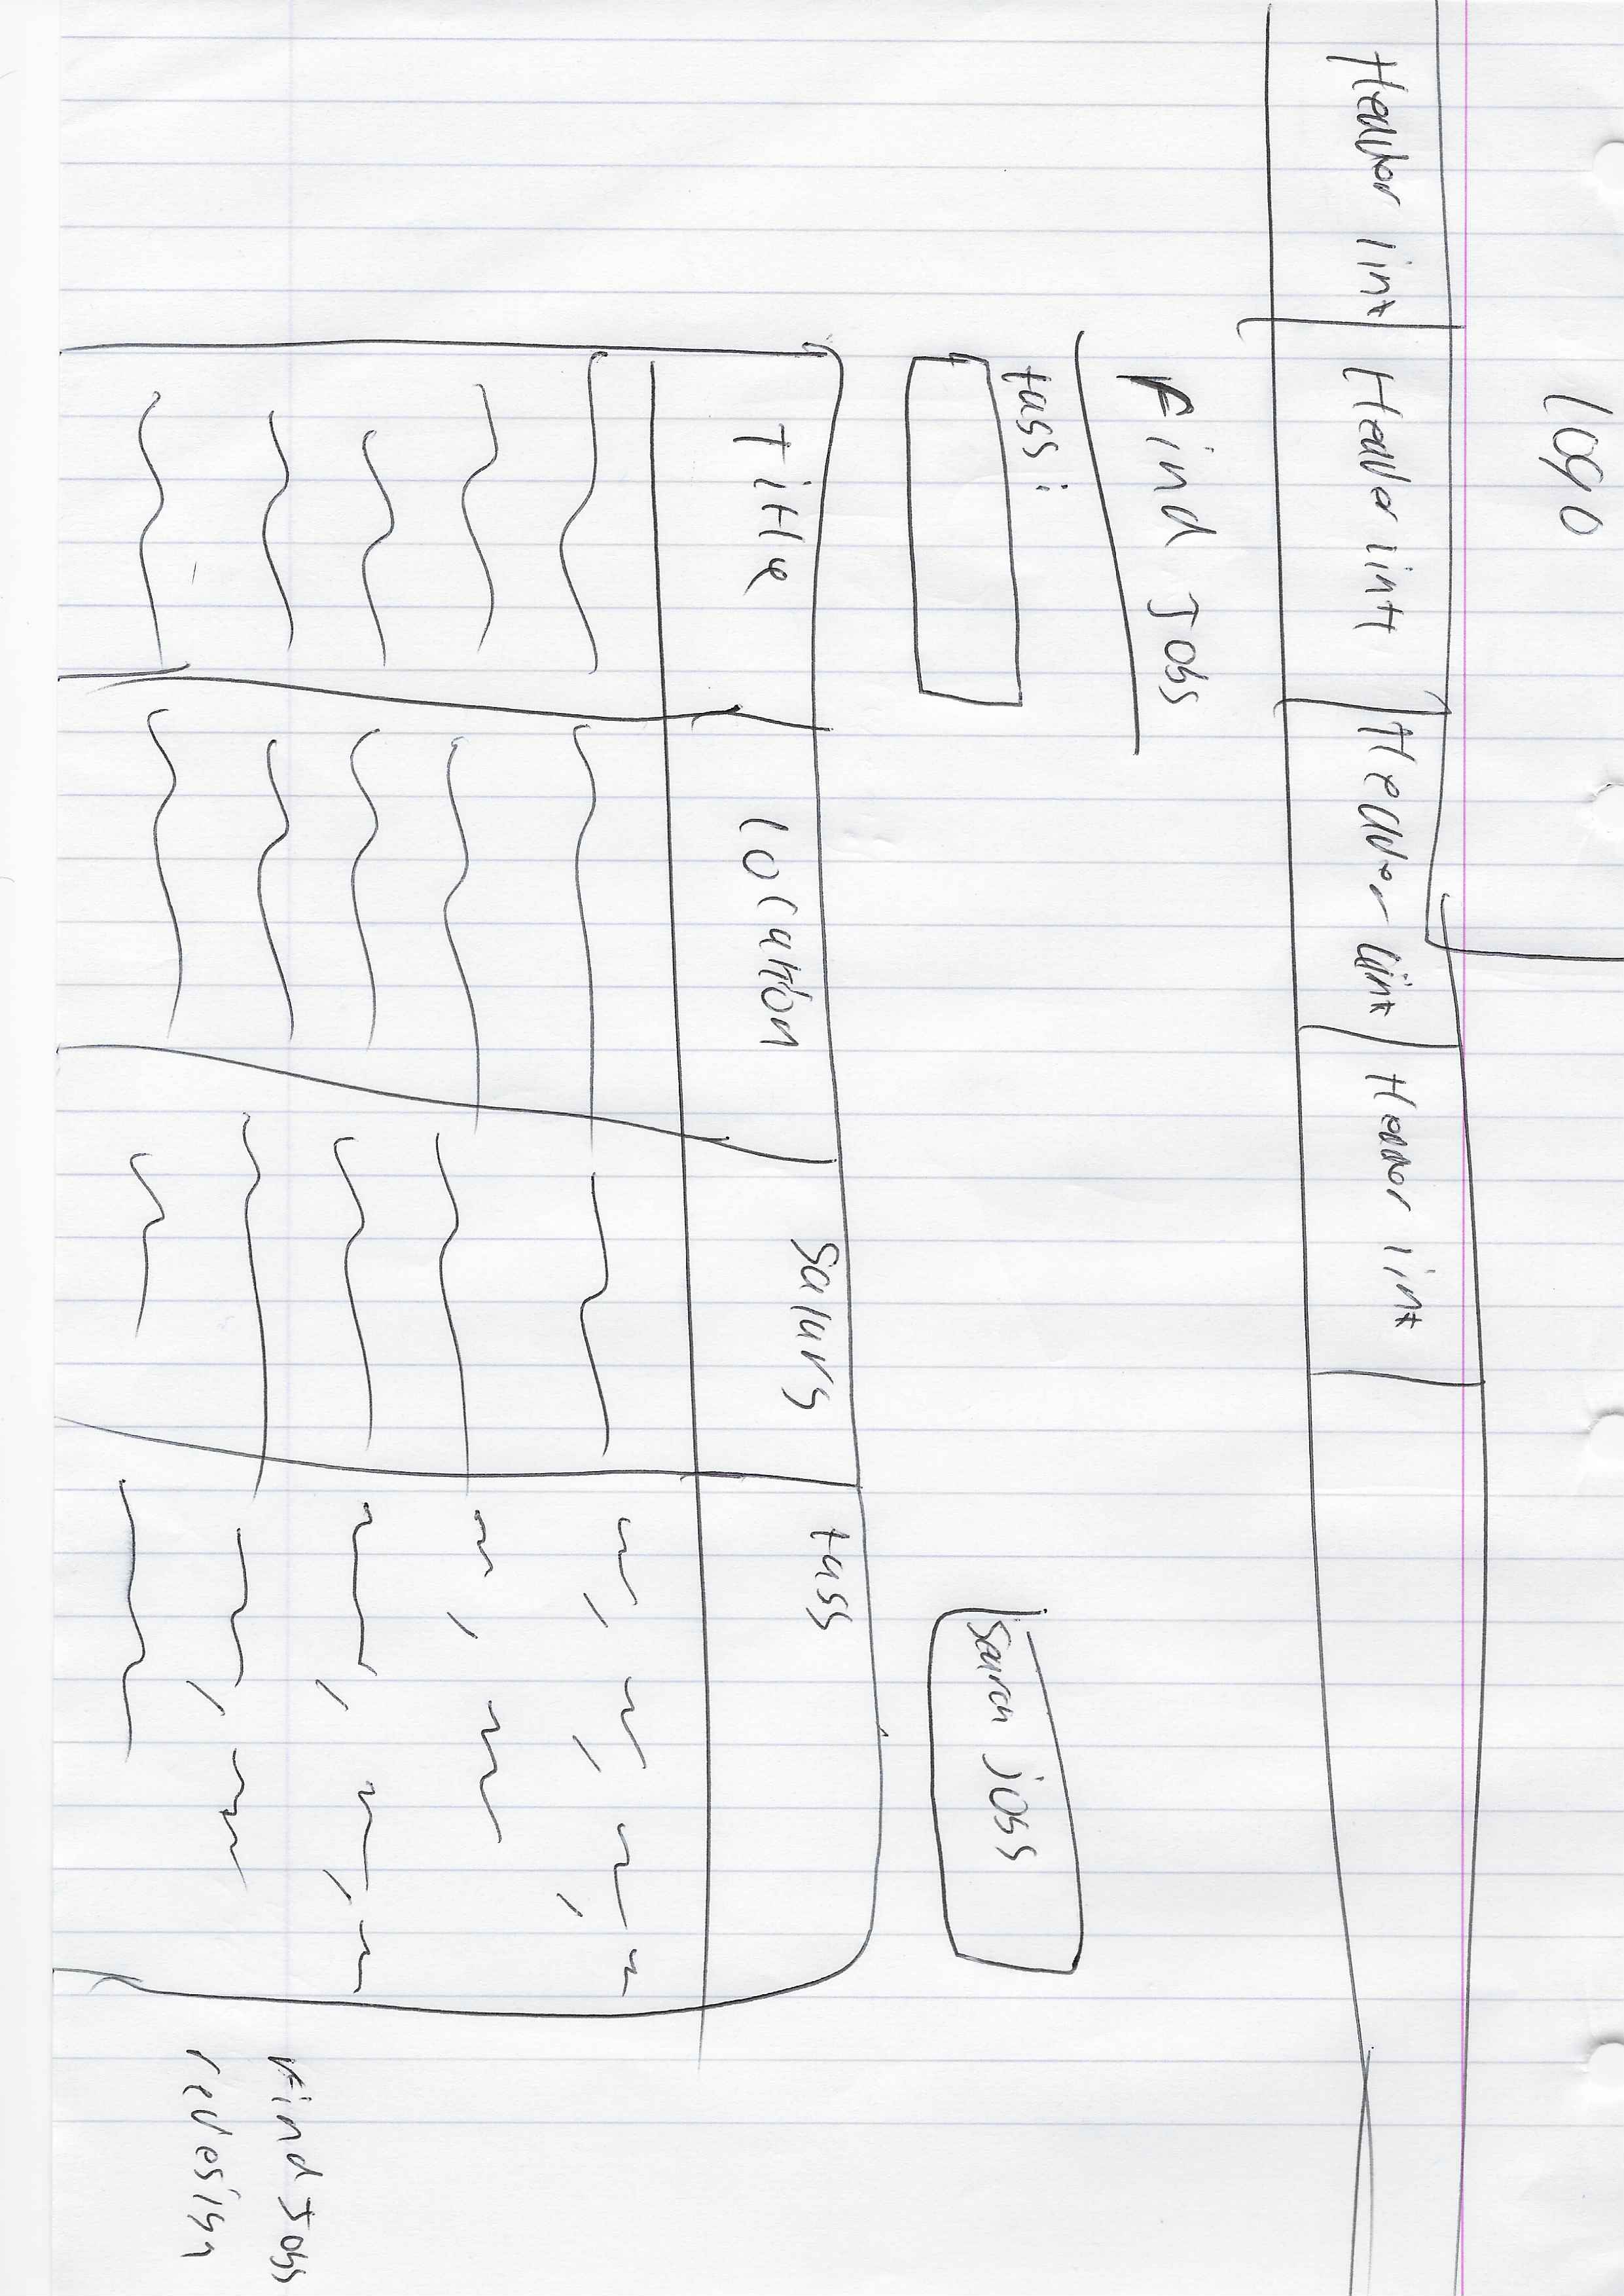 logo
Header link Header link Header link Header link
Find Jobs
tags:
Search jobs
Title Location Salary tags
Find Jobs
redesign